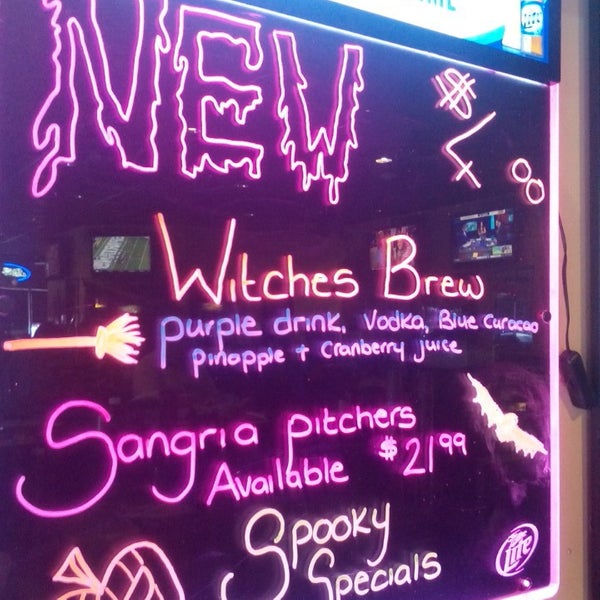 NEW
$4.00
Witches Brew
purple drink, Vodka, Blue Curacao
pinapple + cranberry juice
Sangria pitchers
Available $21.99
Spooky
Specials
Lite